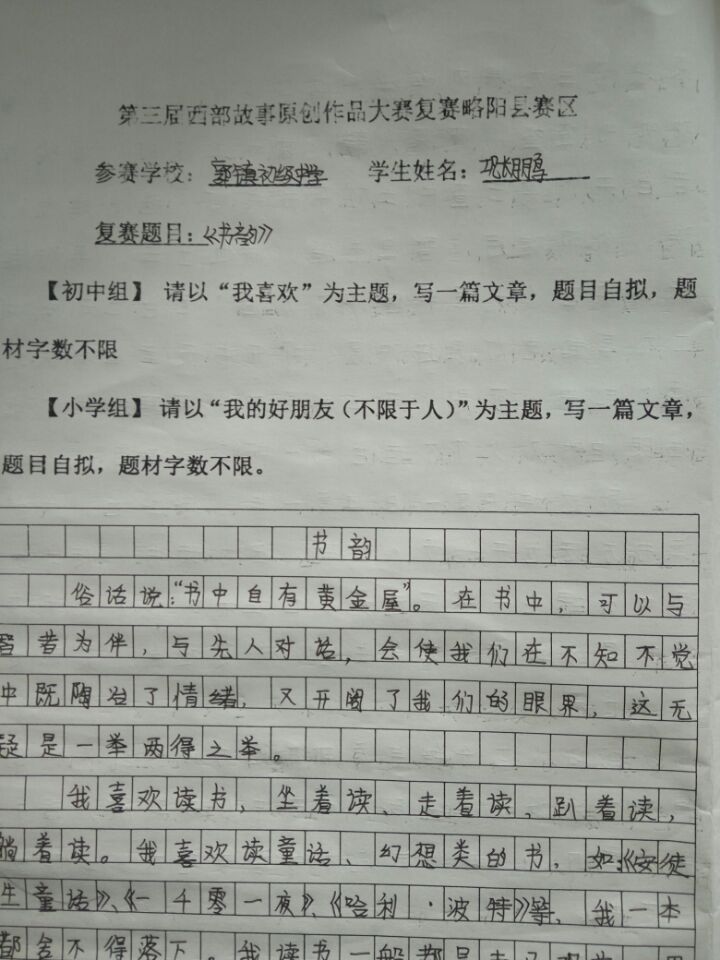 第三届西部故事原创作品大赛复赛略阳县赛区
参赛学校：郭镇初级中学 学生姓名：鹏
复赛题目：《书韵》
【初中组】 请以“我喜欢”为主题，写一篇文章，题目自拟，题
材字数不限
【小学组】 请以“我的好朋友（不限于人）”为主题，写一篇文章，
题目自拟，题材字数不限。
书韵
俗话说：“书中自有黄金屋”。在书中，可以与
智者为伴，与先人对话，会使我们在不知不觉
中既陶冶了情绪，又开阔了我们的眼界，这无
疑是一举两得之举。
我喜欢读书，坐着读、走着读、趴着读，
躺着读。我喜欢读童话、幻想类的书，如：《安徒
生童话》、《一千零一夜》、《哈利·波特》等，我一本
都舍不得落下。我读书一般都是